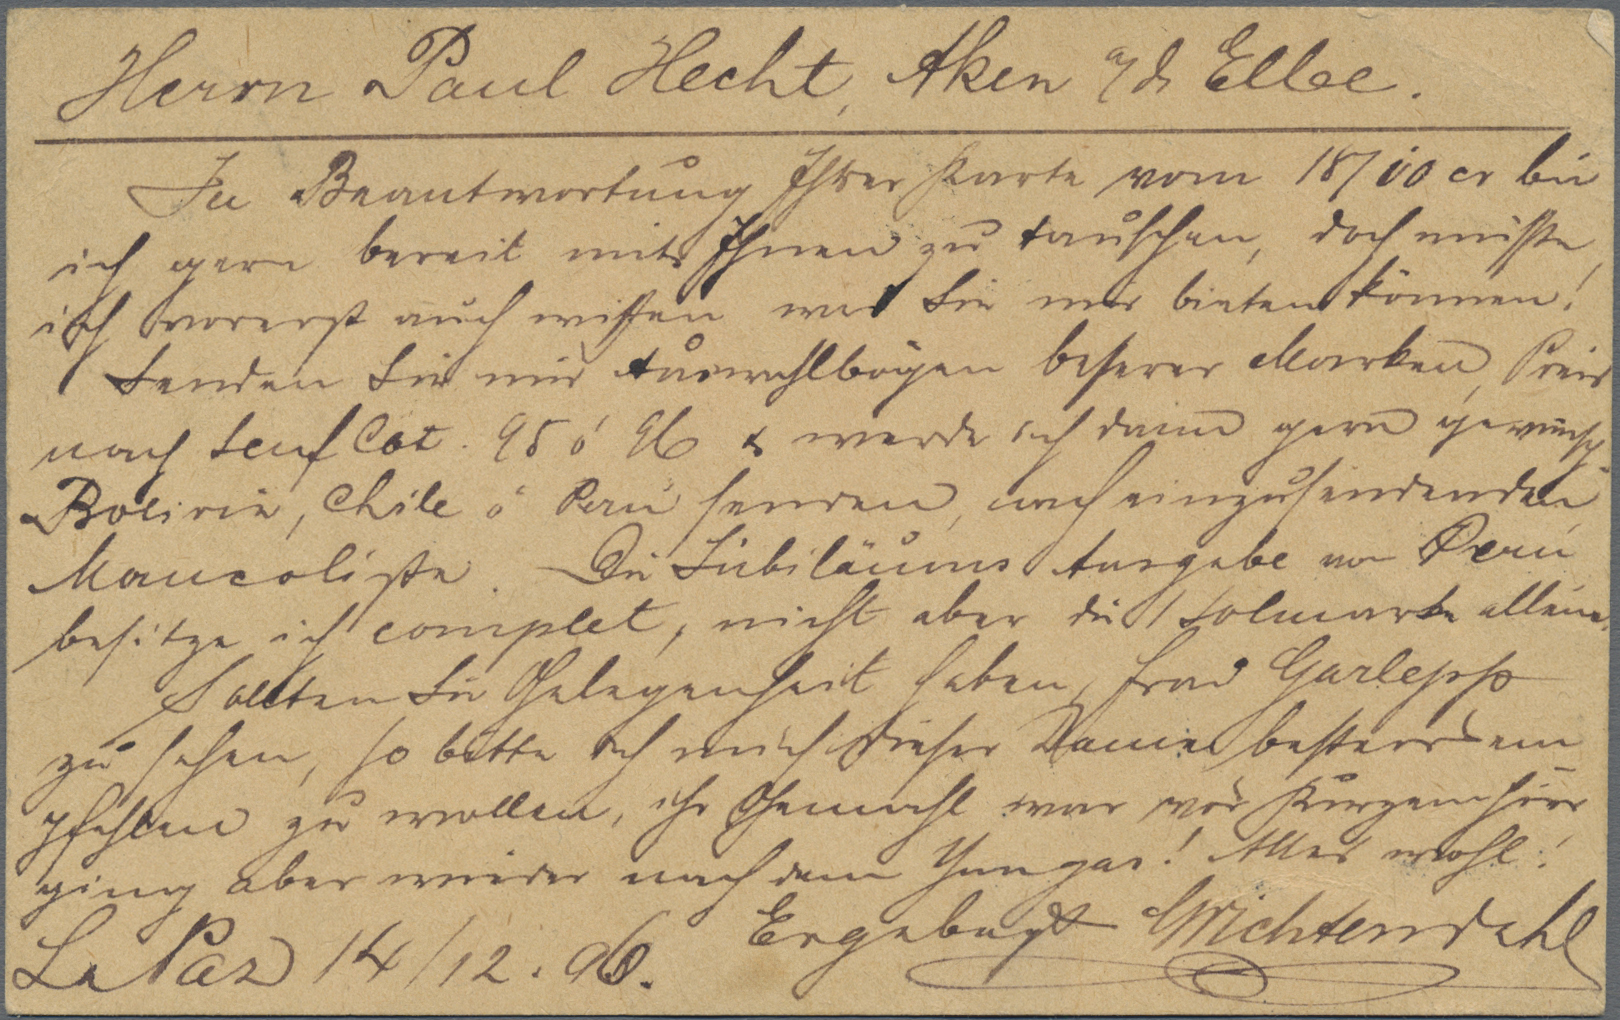 Herrn Paul Hecht, Aken a/d Elbe.
In Beantwortung Ihrer Karte vom 18/10 cr bin
ich gern bereit mit Ihnen zu tauschen, doch müßte
ich vorerst auch wißen was Sie mir bieten können!
Senden Sie mir Auswahlbögen beßerer Marken, Preis
nach Senf Cat. 95 ó 96 & werde ich dann gern gewünsch.
Bolivia, Chile ó Peru senden, nach einzusendenden
Mancoliste. Die Jubiläums Ausgabe von Peru
besitze ich complet, nicht aber die 1 Solmarke allein.
Sollten Sie Gelegenheit haben, Frau Garlepp
zu sehen, so bitte ich mich dieser Dame bestens em
pfehlen zu wollen, ihr Gemahl war vor Kurzem hier
ging aber wieder nach den Yungas! Alles wohl!
La Paz 14/12. 96. Ergebenst Wichtendahl